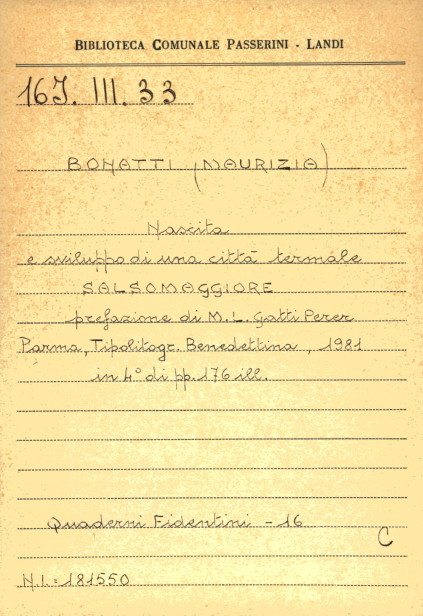 BIBLIOTECA COMUNALE PASSERINI - LANDI
16J. III. 33
BONATTI (MAURIZIA)
Nascita
e sviluppo di una città termale
SALSOMAGGIORE
prefazione di M. L. Gatti Perer
Parma, Tipolitogr. Benedettina, 1981
in 4° di pp. 176 ill.
Quaderni Fidentini - 16
C
N.I. = 181550